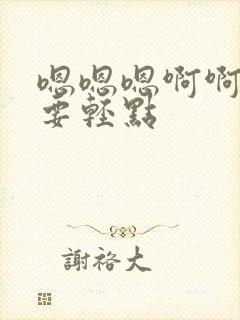 嗯嗯嗯啊啊
要輕點
謝裕大